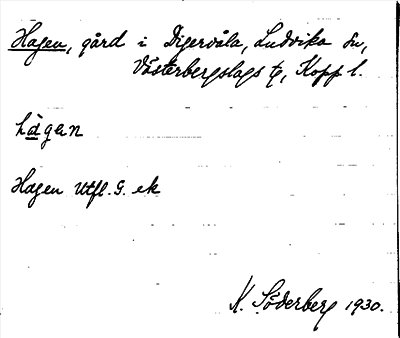 Hagen, gård i Digervåla, Ludvika sn,
Västerbergslags tg, Kopp l.
hàgan
Hagen Utfl. G. ek
K. Söderberg 1930.